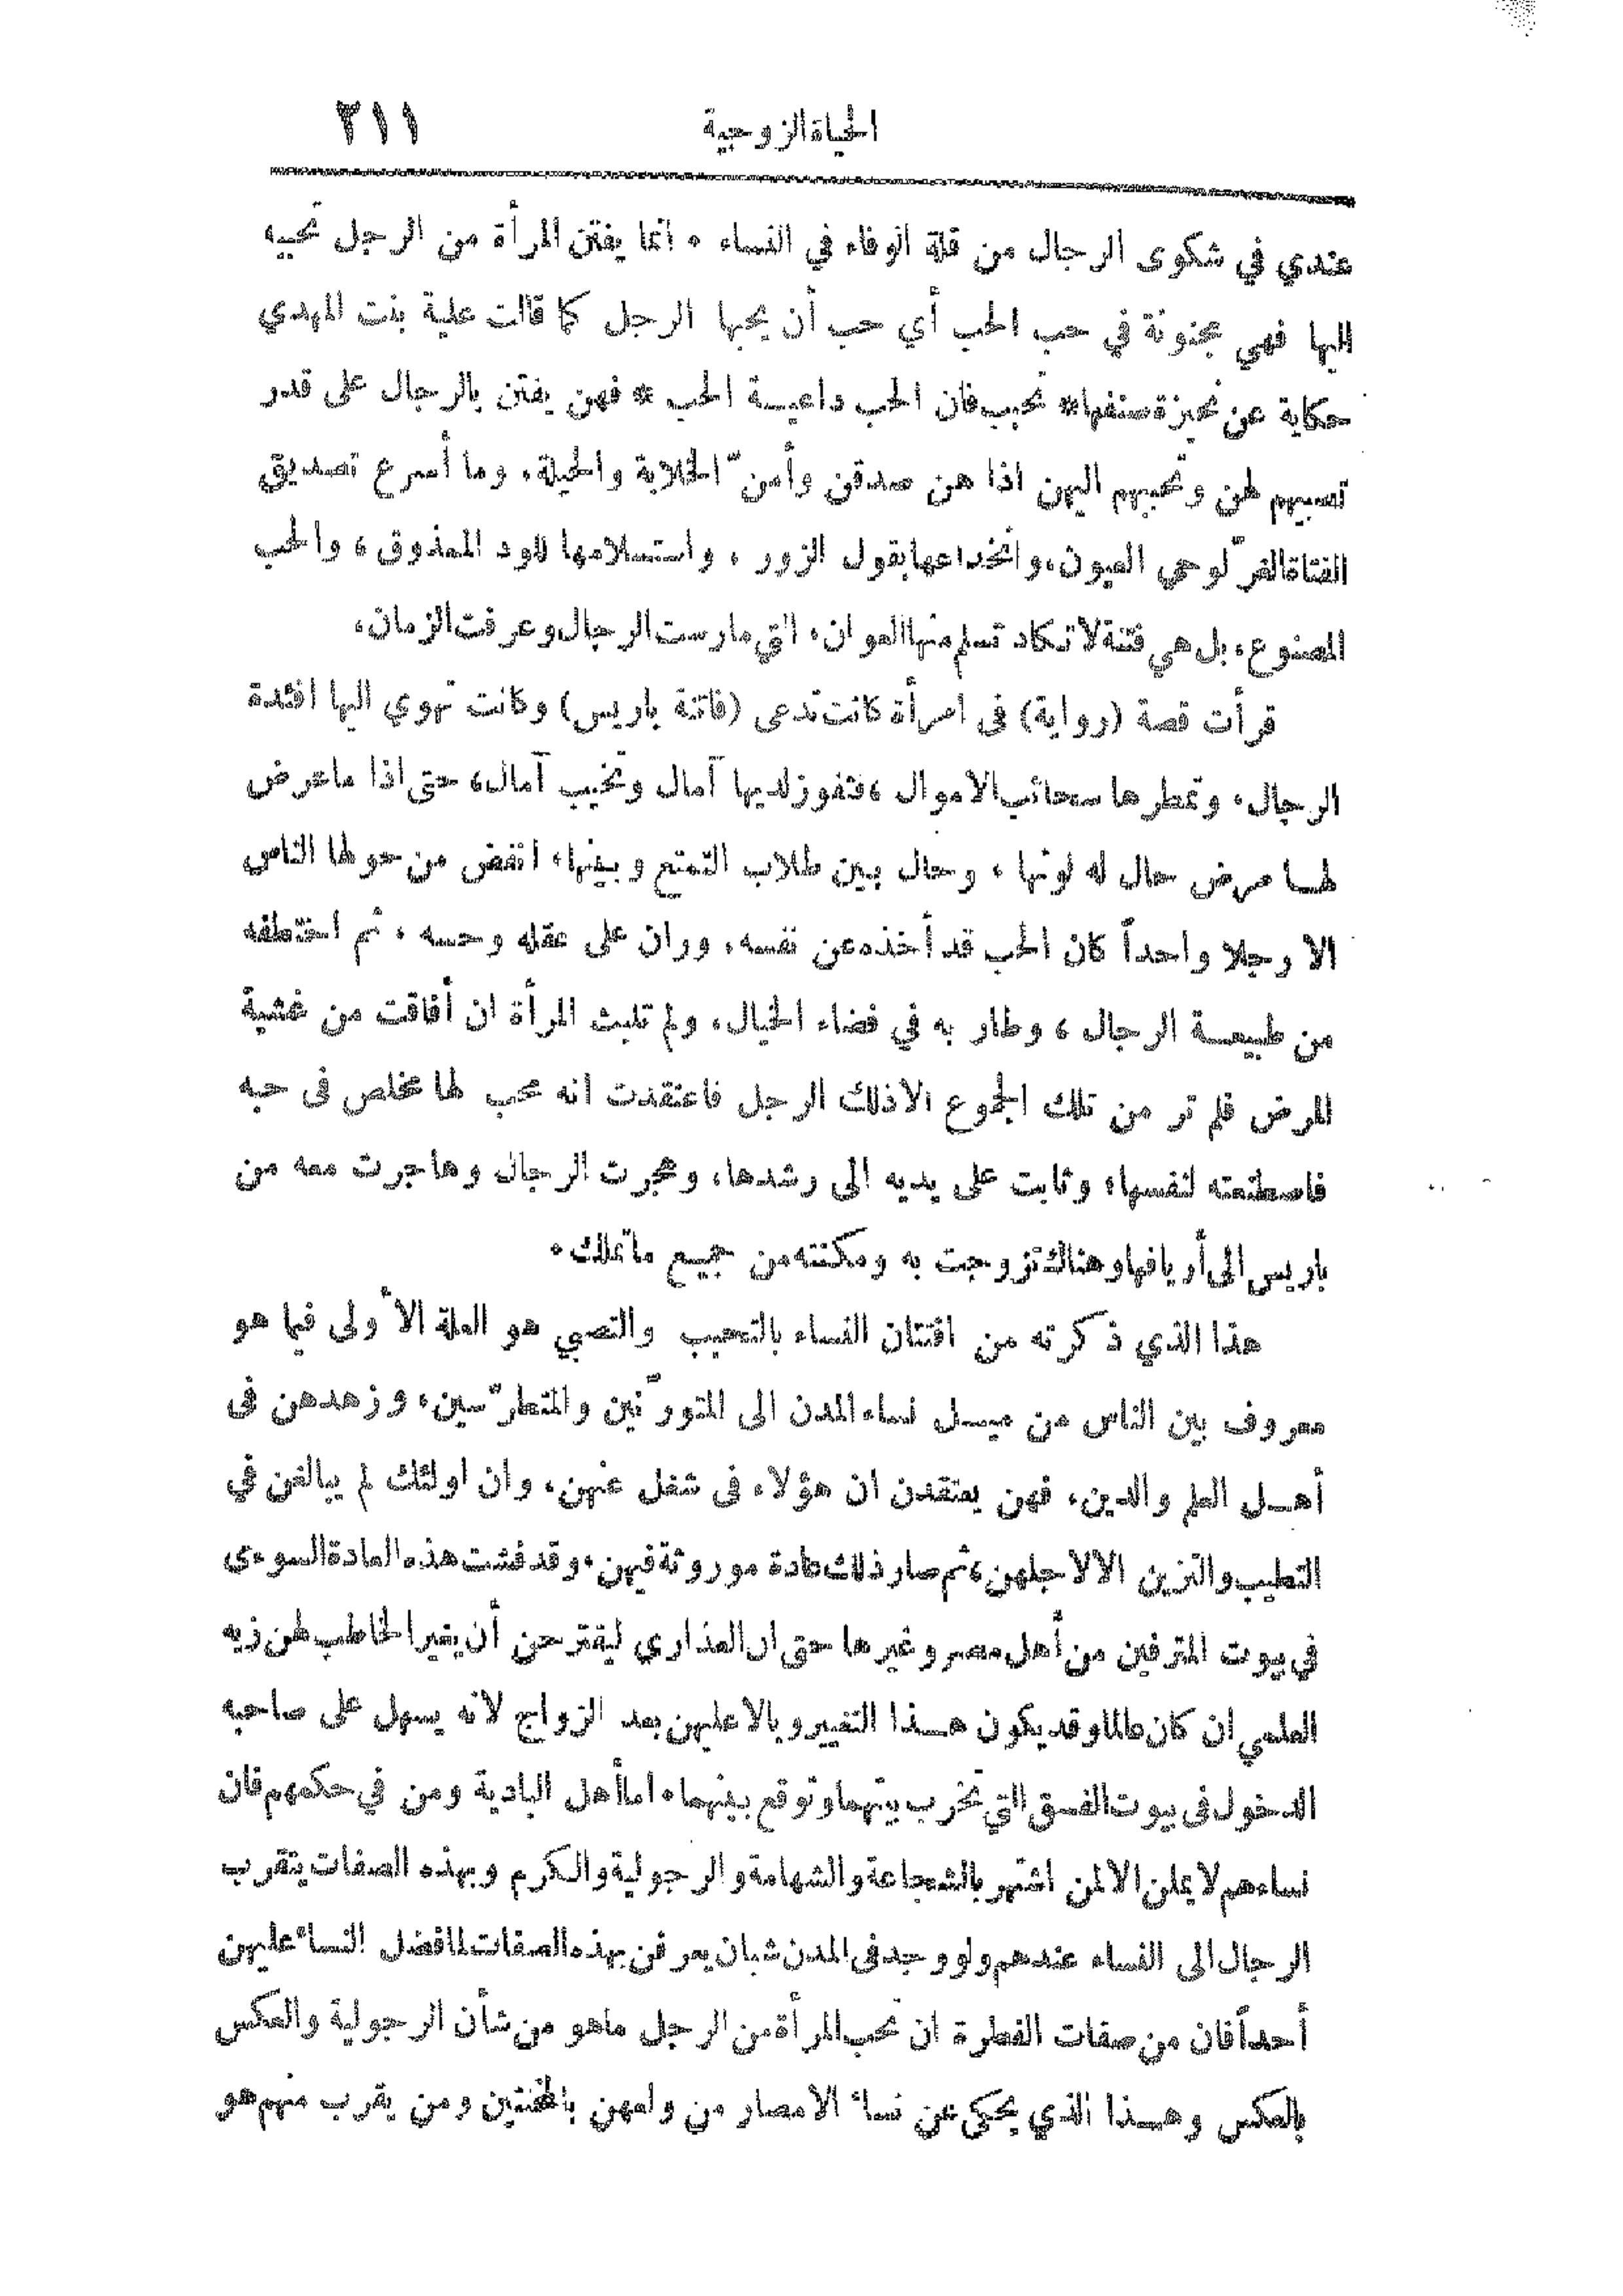 الحياة الزوجية ٢١١
عندي في شكوى الرجال من قلة الوفاء في النساء ٠ انما يفتن المرأة من الرجل تحببه
اليها فهي مجنونة في حب الحب أي حب أن يحبها الرجل كما قالت علية بنت المهدي
حكاية عن نحيزة صنفها* تحبب فان الحب داعية الحب * فهن يفتن بالرجال على قدر
تصبيهم لهن وتحببهم اليهن اذا هن صدقن وأمنّ الخلابة والحيلة، وما أسرع تصديق
الفتاة الغرّ لوحي العيون، وانخداعها بقول الزور ، واستسلامها للود الممذوق، والحب
المصنوع، بل هي فتنة لا تكاد تسلم منها العوان، التي مارست الرجال وعرفت الزمان،
قرأت قصة (رواية) فى امرأة كانت تدعى (فاتنة باريس) وكانت تهوي اليها افئدة
الرجال، وتمطرها سحائب الاموال ، فتفوز لديها آمال وتخيب آمال، حتى اذا ما عرض
لهـا مرض حال له لونها ، وحال بين طلاب التمتع وبينها، انفض من حولها الناس
الا رجلا واحداً كان الحب قد أخذه عن نفسه، وران على عقله وحسه ، ثم اختطفه
من طبيعـة الرجال ، وطار به في فضاء الخيال، ولم تلبث المرأة ان أفاقت من غشية
المرض فلم تر من تلك الجموع الا ذلك الرجل فاعتقدت انه محب لها مخلص فى حبه
فاصطنعته لنفسها، وثابت على يديه الى رشدها، وهجرت الرجال وهاجرت معه من
باريس الى أريافها وهناك تزوجت به ومكنته من جميع ما تملك ٠
هذا الذي ذكرته من افتتان النساء بالتحبب والتصبي هو العلة الأولى فيما هو
معروف بين الناس من ميـل نساء المدن الى المتورّنين والمتطرّسين، وزهدهن فى
أهـل العلم والدين، فهن يعتقدن ان هؤلاء فى شغل عنهن، وان اولئك لم يبالغن في
التطيب والتزين الا لاجلهن، ثم صار ذلك عادة موروثة فيهن، وقد فشت هذه العادة السوءى
في بيوت المترفين من أهل مصر وغيرها حتى ان العذارى ليقترحن أن يغير الخاطب لهن زيه
العلمي ان كان عالما وقد يكون هـذا التغيير وبالا عليهن بعد الزواج لانه يسهل على صاحبه
الدخول فى بيوت الفسق التي تخرب بيتهما وتوقع بينهما ٠ اما أهل البادية ومن في حكمهم فان
نساءهم لا يملن الا لمن اشتهر بالشجاعة والشهامة والرجولية والكرم وبهذه الصفات يتقرب
الرجال الى النساء عندهم ولو وجد فى المدن شبان يعرفن بهذه الصفات لما فضل النساء عليهن
أحداً فان من صفات الفطرة ان تحب المرأة من الرجل ما هو من شأن الرجولية والعكس
بالعكس وهـذا الذي يحكى عن نساء الامصار من ولعهن بالمخنثين ومن يقرب منهم هو